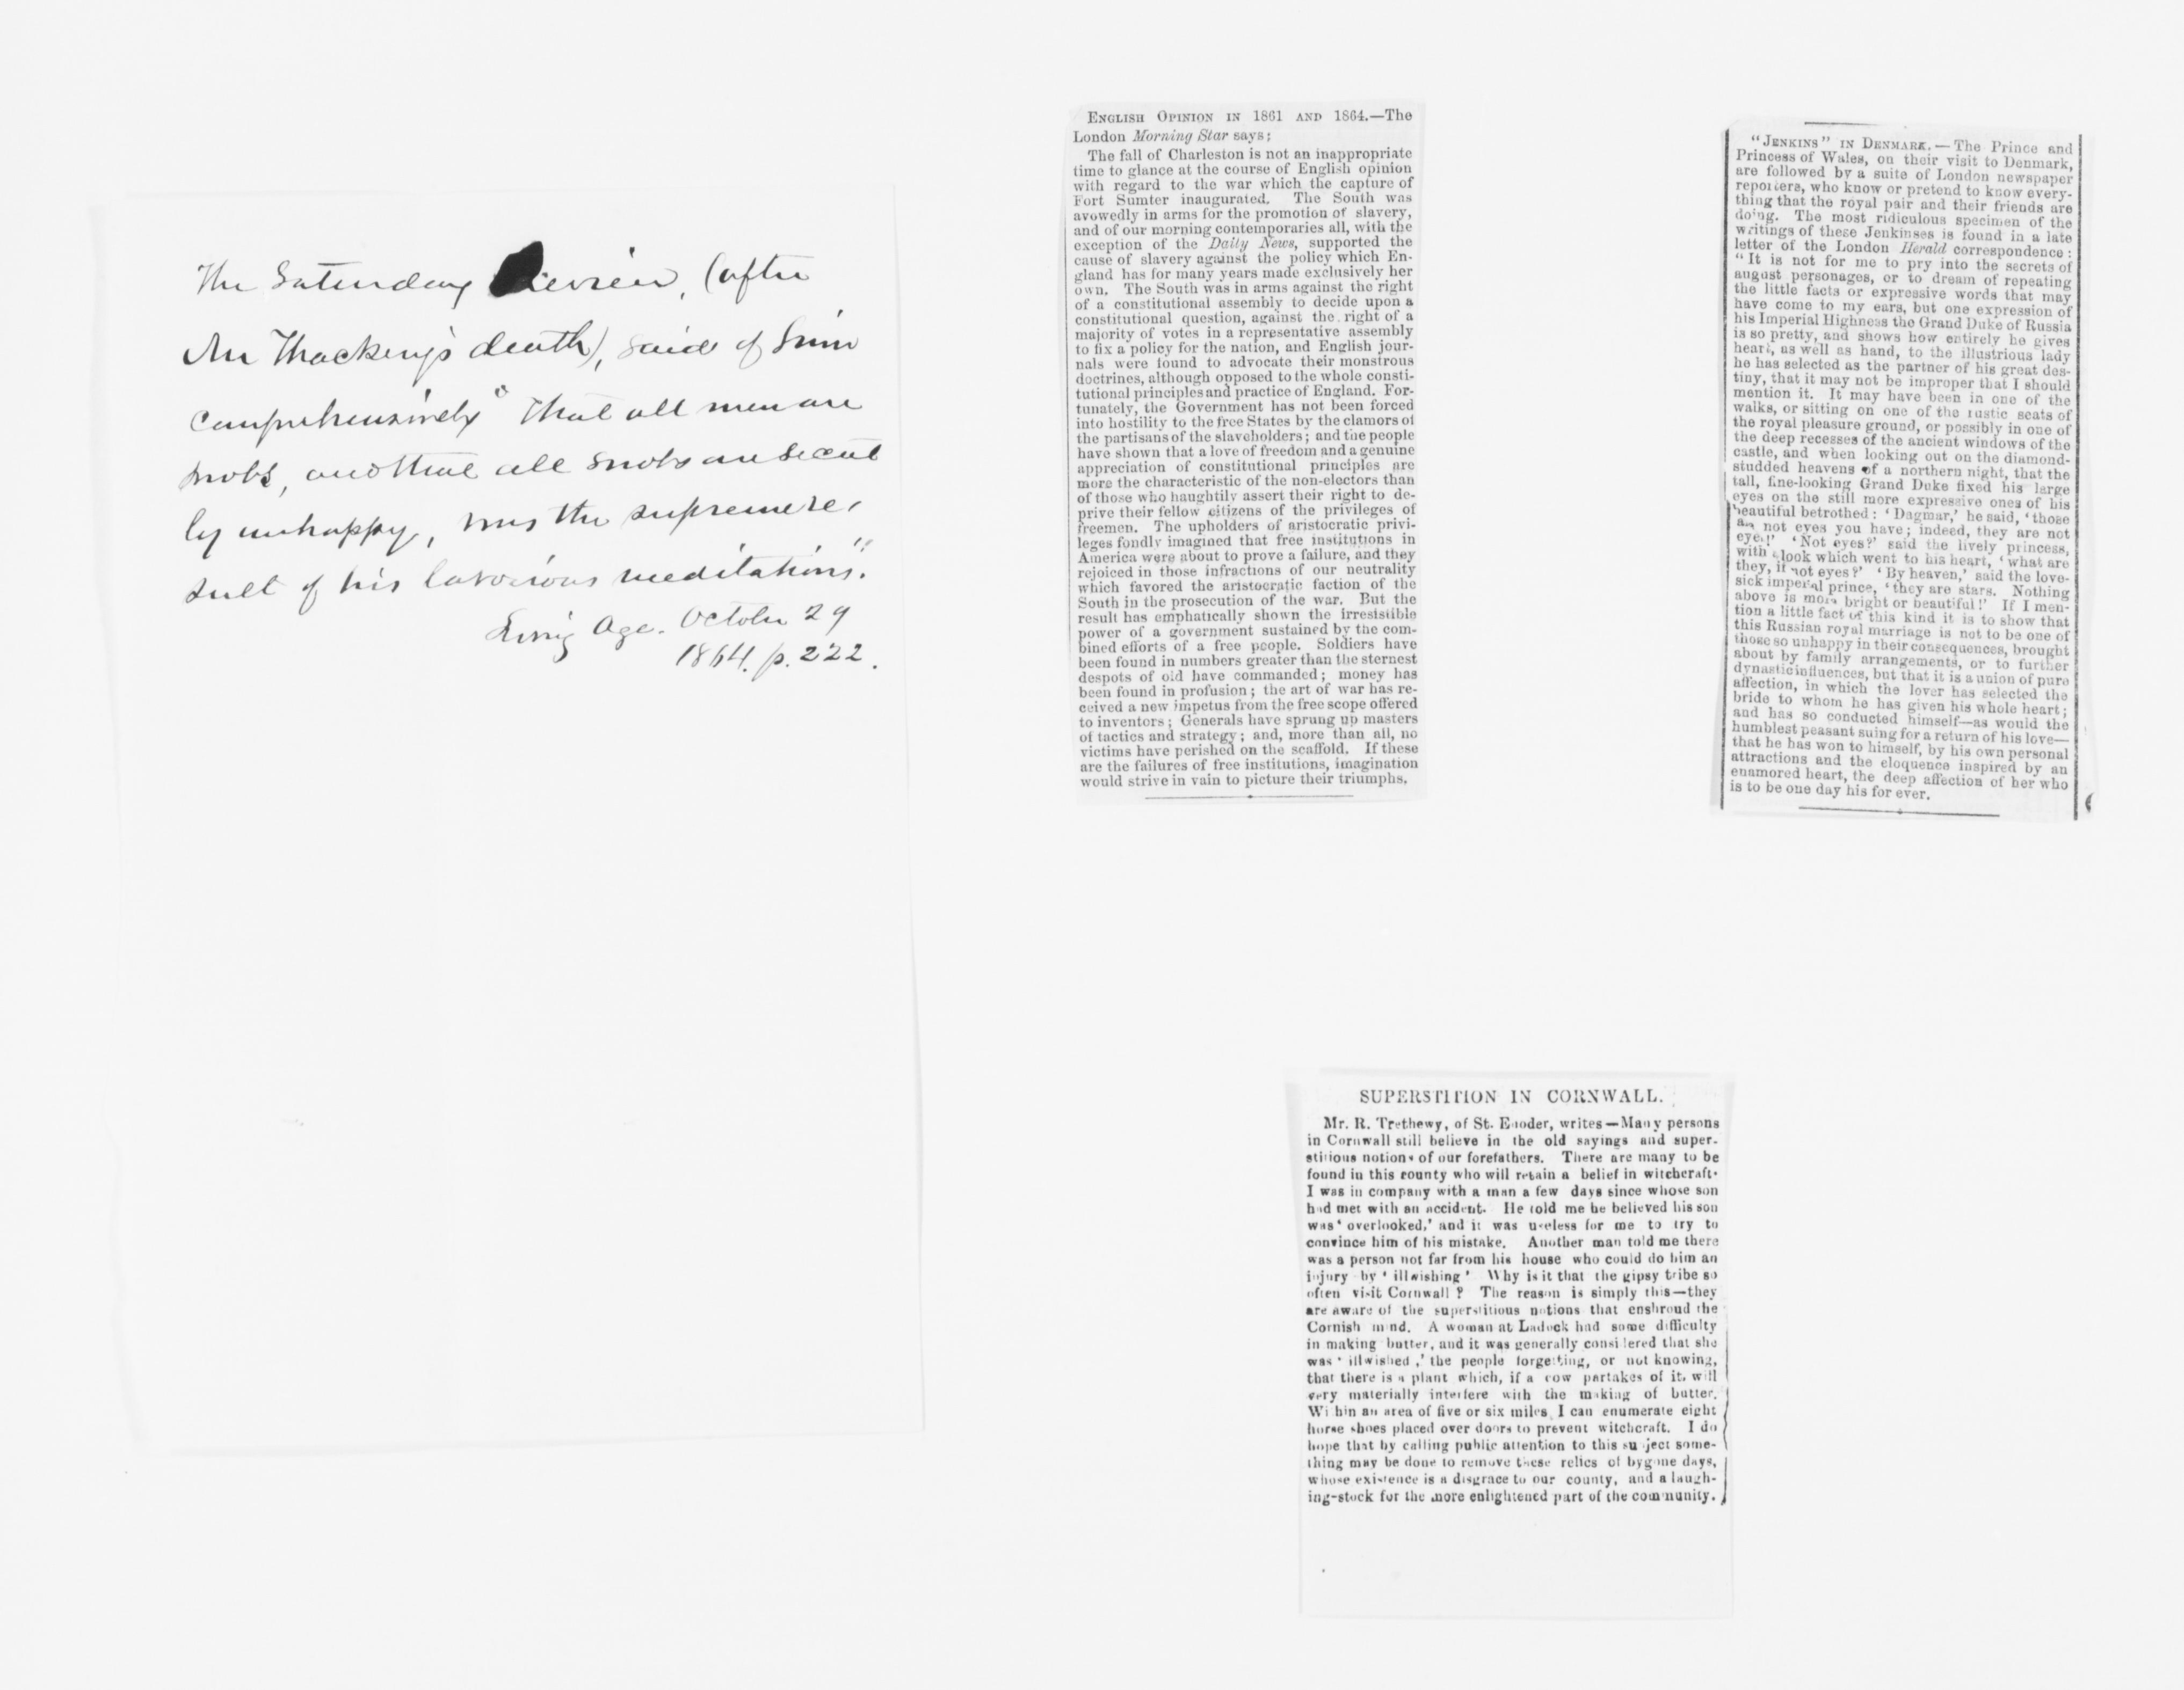 The Saturday Review, (after
Mr Thackery's death), said of him
comprehensively "That all men are
snobs, and that all snobs are secret
ly unhappy, was the supreme re,
sult of his laborious meditations."
Living Age. October 29
1864. p. 222.
ENGLISH OPINION IN 1861 AND 1864.—The
London Morning Star says;
The fall of Charleston is not an inappropriate
time to glance at the course of English opinion
with regard to the war which the capture of
Fort Sumter inaugurated. The South was
avowedly in arms for the promotion of slavery,
and of our morning contemporaries all, with the
exception of the Daily News, supported the
cause of slavery against the policy which En-
gland has for many years made exclusively her
own. The South was in arms against the right
of a constitutional assembly to decide upon a
constitutional question, against the right of a
majority of votes in a representative assembly
to fix a policy for the nation, and English jour-
nals were found to advocate their monstrous
doctrines, although opposed to the whole consti-
tutional principles and practice of England. For-
tunately, the Government has not been forced
into hostility to the free States by the clamors of
the partisans of the slaveholders; and the people
have shown that a love of freedom and a genuine
appreciation of constitutional principles are
more the characteristic of the non-electors than
of those who haughtily assert their right to de-
prive their fellow citizens of the privileges of
freemen. The upholders of aristocratic privi-
leges fondly imagined that free institutions in
America were about to prove a failure, and they
rejoiced in those infractions of our neutrality
which favored the aristocratic faction of the
South in the prosecution of the war. But the
result has emphatically shown the irresistible
power of a government sustained by the com-
bined efforts of a free people. Soldiers have
been found in numbers greater than the sternest
despots of old have commanded; money has
been found in profusion; the art of war has re-
ceived a new impetus from the free scope offered
to inventors; Generals have sprung up masters
of tactics and strategy; and, more than all, no
victims have perished on the scaffold. If these
are the failures of free institutions, imagination
would strive in vain to picture their triumphs.
"JENKINS" IN DENMARK.—The Prince and
Princess of Wales, on their visit to Denmark,
are followed by a suite of London newspaper
reporters, who know or pretend to know every-
thing that the royal pair and their friends are
doing. The most ridiculous specimen of the
writings of these Jenkinses is found in a late
letter of the London Herald correspondence:
"It is not for me to pry into the secrets of
august personages, or to dream of repeating
the little facts or expressive words that may
have come to my ears, but one expression of
his Imperial Highness the Grand Duke of Russia
is so pretty, and shows how entirely he gives
heart, as well as hand, to the illustrious lady
he has selected as the partner of his great des-
tiny, that it may not be improper that I should
mention it. It may have been in one of the
walks, or sitting on one of the rustic seats of
the royal pleasure ground, or possibly in one of
the deep recesses of the ancient windows of the
castle, and when looking out on the diamond-
studded heavens of a northern night, that the
tall, fine-looking Grand Duke fixed his large
eyes on the still more expressive ones of his
beautiful betrothed: 'Dagmar,' he said, 'those
are not eyes you have; indeed, they are not
eyes!' 'Not eyes?' said the lively princess,
with a look which went to his heart, 'what are
they, if not eyes?' 'By heaven,' said the love-
sick imperial prince, 'they are stars. Nothing
above is more bright or beautiful!' If I men-
tion a little fact of this kind it is to show that
this Russian royal marriage is not to be one of
those so unhappy in their consequences, brought
about by family arrangements, or to further
dynastic influences, but that it is a union of pure
affection, in which the lover has selected the
bride to whom he has given his whole heart;
and has so conducted himself—as would the
humblest peasant suing for a return of his love—
that he has won to himself, by his own personal
attractions and the eloquence inspired by an
enamored heart, the deep affection of her who
is to be one day his for ever.
SUPERSTITION IN CORNWALL.
Mr. R. Trethewy, of St. Enoder, writes—Many persons
in Cornwall still believe in the old sayings and super-
stitious notions of our forefathers. There are many to be
found in this county who will retain a belief in witchcraft.
I was in company with a man a few days since whose son
had met with an accident. He told me he believed his son
was 'overlooked,' and it was useless for me to try to
convince him of his mistake. Another man told me there
was a person not far from his house who could do him an
injury by 'illwishing' Why is it that the gipsy tribe so
often visit Cornwall? The reason is simply this—they
are aware of the superstitious notions that enshroud the
Cornish mind. A woman at Ladock had some difficulty
in making butter, and it was generally considered that she
was 'illwished,' the people forgetting, or not knowing,
that there is a plant which, if a cow partakes of it, will
very materially interfere with the making of butter.
Within an area of five or six miles I can enumerate eight
horse shoes placed over doors to prevent witchcraft. I do
hope that by calling public attention to this subject some-
thing may be done to remove these relics of bygone days,
whose existence is a disgrace to our county, and a laugh-
ing-stock for the more enlightened part of the community.